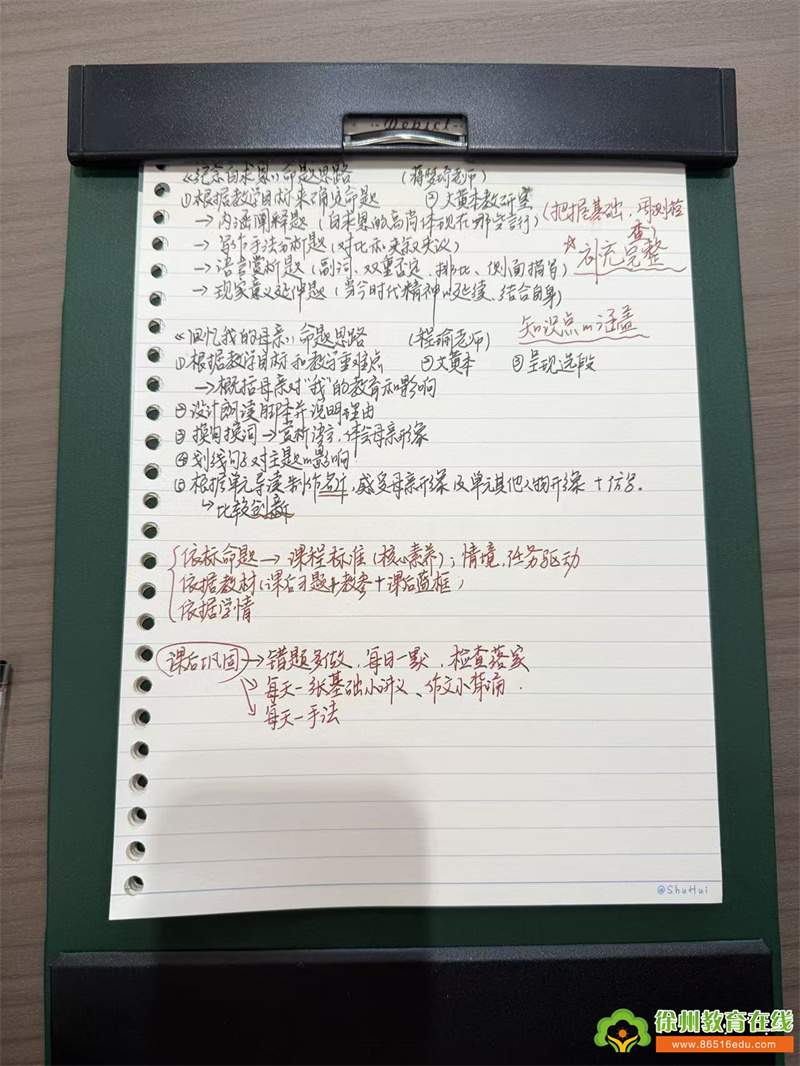 《纪念白求恩》命题思路 (蒋梦琦老师)
①根据教学目标来确定命题 ②大黄本教研室
(把握基础,周测检查)
→内涵阐释题(白求恩的高尚体现在哪些言行)
→写作手法分析题(对比和夹叙夹议)
☆补充完整
→语言赏析题(副词、双重否定、排比、侧面描写)
→现实意义延伸题(当今时代精神以延续、结合自身)
知识点m涵盖
《回忆我的母亲》命题思路 (程瑜老师)
①根据教学目标和教学重难点 ②大黄本 ③呈现选段
→概括母亲对“我”的教育和影响
②设计朗读脚本并说明理由
③换句换词→赏析语言,体会母亲形象
④划线句子对主题m影响
⑤根据单元导读制作名片,感受母亲形象及单元其他人物形象+仿写.
↳比较创新
依标命题→课程标准(核心素养);情境,任务驱动
依据教材(课后习题+教参+课后蓝框)
依据学情
课后巩固→错题多做,每日一默,检查落实
→每天一张基础小讲义、作文小背诵.
→每天一手法
@ShuHui
徐州教育在线
www.86516edu.com